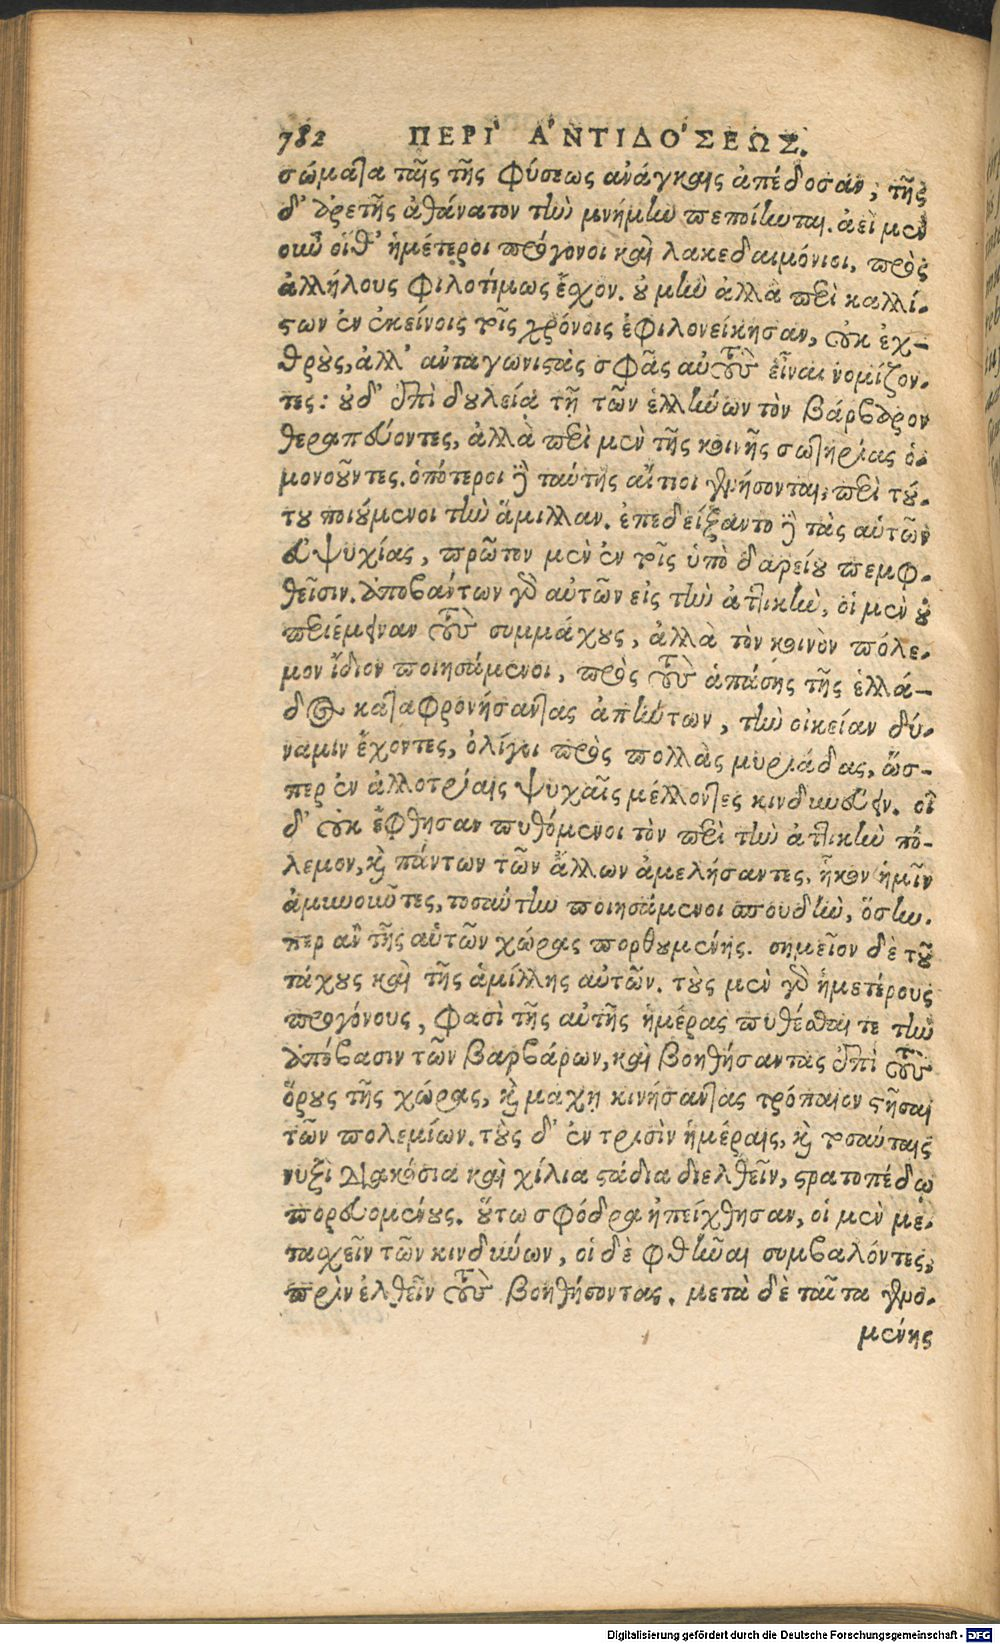 782 ΠΕΡΙ' Α'ΝΤΙΔΟ'ΣΕΩΣ.
σώματα ταῖς τῆς φύσεως ἀνάγκαις ἀπέδοσαν, τῆς
δ' ἀρετῆς ἀθάνατον τὴν μνήμην πεποίηνται. ἀεὶ μὲν
οὖν οἵθ' ἡμέτεροι πρόγονοι καὶ λακεδαιμόνιοι, πρὸς
ἀλλήλους φιλοτίμως ἔσχον. οὐ μὴν ἀλλὰ περὶ καλλί-
στων ἐν ἐκείνοις τοῖς χρόνοις ἐφιλονείκησαν, οὐκ ἐχ-
θροὺς, ἀλλ' ἀνταγωνιστὰς σφᾶς αὐτοὺς εἶναι νομίζον-
τες: οὐδ' ἐπὶ δουλείᾳ τῇ τῶν ἑλλήνων τὸν βάρβαρον
θεραπεύοντες, ἀλλὰ περὶ μὲν τῆς κοινῆς σωτηρίας ὁ-
μονοοῦντες. ὁπότεροι δὲ ταύτης αἴτιοι γενήσονται, περὶ τού-
του ποιούμενοι τὴν ἅμιλλαν. ἐπεδείξαντο δὲ τὰς αὑτῶν
εὐψυχίας, πρῶτον μὲν ἐν τοῖς ὑπὸ δαρείου πεμφ-
θεῖσιν. ἀποβάντων γὰρ αὐτῶν εἰς τὴν ἀττικὴν, οἱ μὲν οὐ
περιέμειναν τοὺς συμμάχους, ἀλλὰ τὸν κοινὸν πόλε-
μον ἴδιον ποιησάμενοι, πρὸς τοὺς ἁπάσης τῆς ἑλλά-
δος καταφρονήσαντας ἀπήντων, τὴν οἰκείαν δύ-
ναμιν ἔχοντες, ὀλίγοι πρὸς πολλὰς μυριάδας, ὥσ-
περ ἐν ἀλλοτρίαις ψυχαῖς μέλλοντες κινδυνεύειν. οἱ
δ' οὐκ ἔφθησαν πυθόμενοι τὸν περὶ τὴν ἀττικὴν πό-
λεμον, καὶ πάντων τῶν ἄλλων ἀμελήσαντες, ἧκον ἡμῖν
ἀμυνοῦντες, τοσαύτην ποιησάμενοι σπουδὴν, ὅσην-
περ ἂν τῆς αὑτῶν χώρας πορθουμένης. σημεῖον δὲ τοῦ
τάχους καὶ τῆς ἁμίλλης αὐτῶν. τοὺς μὲν γὰρ ἡμετέρους
προγόνους, φασὶ τῆς αὐτῆς ἡμέρας πυθέσθαι τε τὴν
ἀπόβασιν τῶν βαρβάρων, καὶ βοηθήσαντας ἐπὶ τοὺς
ὅρους τῆς χώρας, καὶ μάχῃ κινήσαντας τρόπαιον στῆσαι
τῶν πολεμίων. τοὺς δ' ἐν τρισὶν ἡμέραις, καὶ τοσαύταις
νυξὶ διακόσια καὶ χίλια στάδια διελθεῖν, στρατοπέδῳ
πορευομένους. οὕτω σφόδρα ἠπείχθησαν, οἱ μὲν με-
τασχεῖν τῶν κινδύνων, οἱ δὲ φθῆναι συμβαλόντες,
πρὶν ἐλθεῖν τοὺς βοηθήσοντας. μετὰ δὲ ταῦτα γενο-
μένης
Digitalisierung gefördert durch die Deutsche Forschungsgemeinschaft - DFG